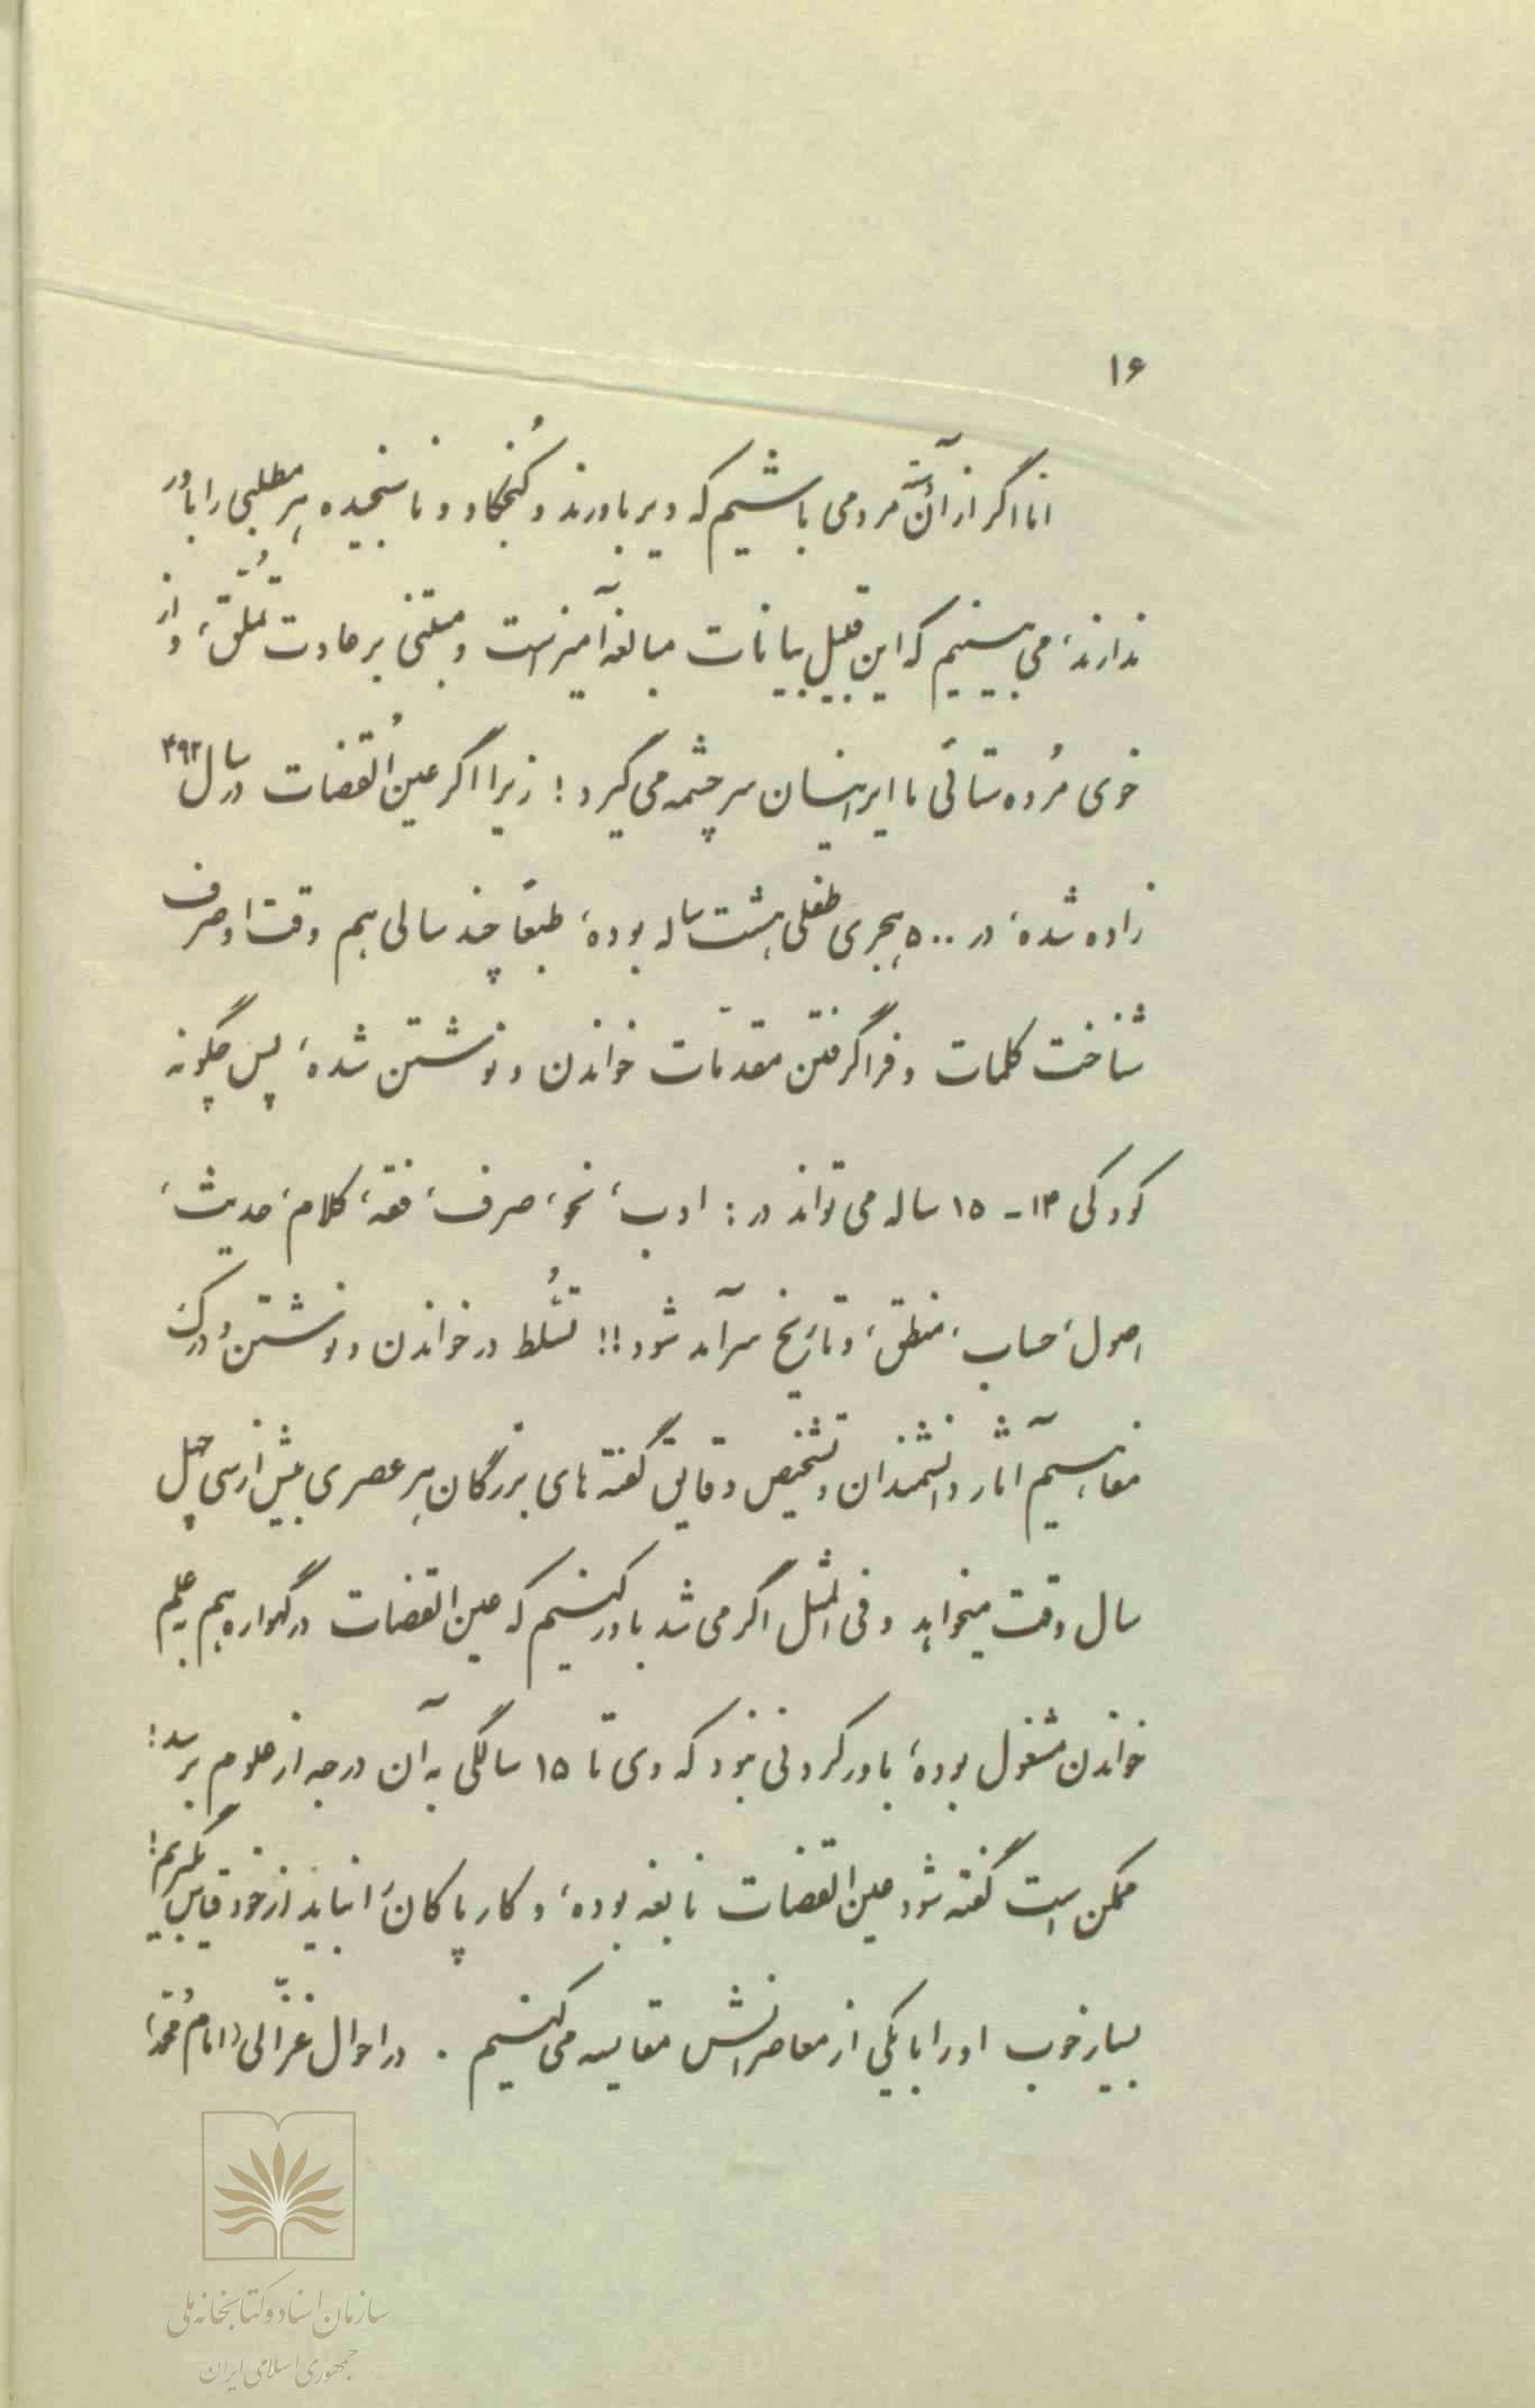 ۱۶
امّا اگر از آن مردمی باشیم که دیر باورند و کُنجکاو و ناسنجیده هر مطلبی را باور
ندارند، می‌بینیم که این قبیل بیانات مبالغه آمیز است و مبتنی بر عادت تملُّق، و از
خوی مُرده ستائی ما ایرانیان سرچشمه می گیرد؛ زیرا اگر عین اُلقضات در سال ۴۹۲
زاده شده، در ۵۰۰ هجری طفلی هشت ساله بوده، طبعاً چند سالی هم وقت او صرف
شناخت کلمات و فرا گرفتن مقدمّات خواندن و نوشتن شده، پس چگونه
کودکی ۱۴ - ۱۵ ساله می تواند در: ادب، نحو، صرف، فقه، کلام، حدیث،
اصول، حساب، منطق، و تاریخ سرآمد شود!! تسُلّط در خواندن و نوشتن و درک
مفاهیم آثار دانشمندان و تشخیص دقایق گفته های بزرگان هر عصری بیش از سی چهل
سال وقت میخواهد و فی المثل اگر می شد باور کنیم که عین القضات در گهواره هم بعلم
خواندن مشغول بوده، باور کردنی نبود که وی تا ۱۵ سالگی به آن درجه از علوم برسد؛
ممکن است گفته شود عین القضات نابغه بوده، و کار پاکان را نباید از خود قیاس بگیریم!
بسیار خوب او را با یکی از معاصرانش مقایسه می کنیم . در احوال غزّالی (امام محمّد)
سازمان اسناد و کتابخانه ملی
جمهوری اسلامی ایران